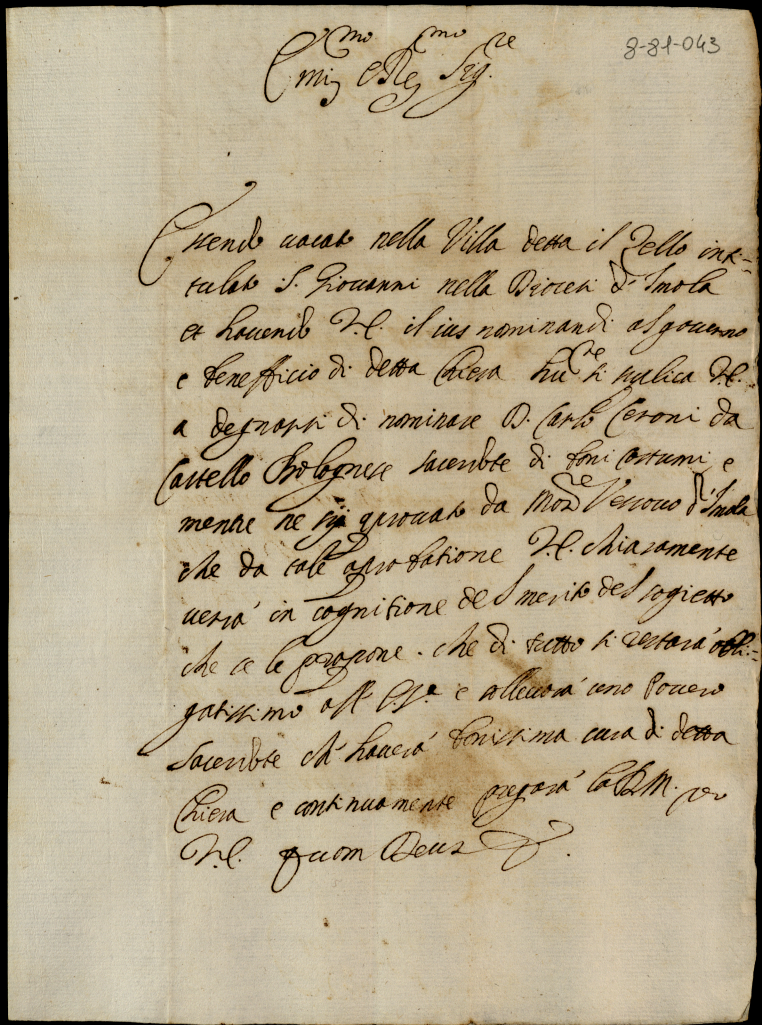 8-81-043
Em.mo e R.mo Sig.re
Essendo vacato nella Villa detta il Zello inti=
tulato S. Giovanni nella Diocesi d'Imola
et havendo V.E. il ius nominandi al governo
e benefficio di detta Chiesa hu.re si suplica V.E.
a degnarsi di nominare D. Carlo Ceroni da
Castello Bolognese sacerdote di boni costumi, e
mentre ne sij aprovato da Mon.re Vescovo d'Imola
che da tale aprobatione V.E. chiaramente
verrà in cognitione del merito del sogietto
che se le propone. che di tutto si restarà obli=
gatissimo all' E.V. e allevarà uno povero
sacerdote ch' haverà bonissima cura di detta
Chiesa e continuamente pregarà la B.M. per
V.E. quam Deus